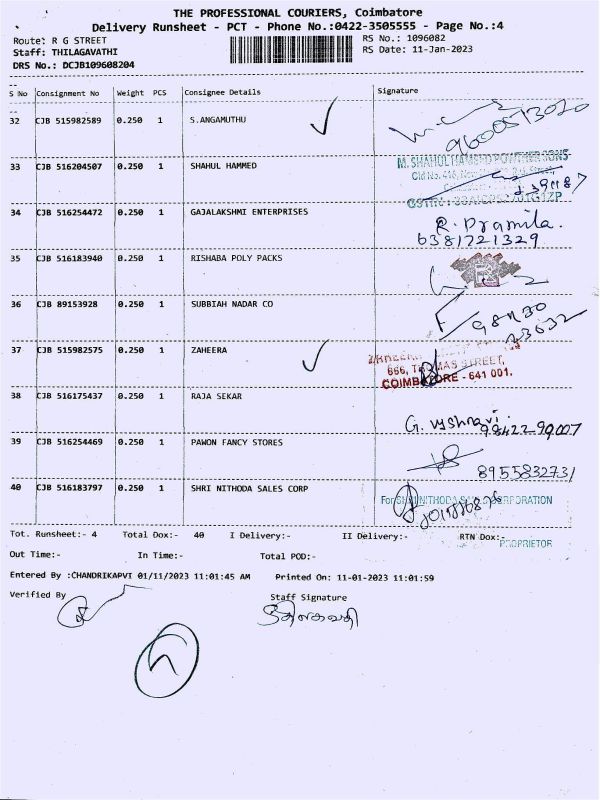 THE PROFESSIONAL COURIERS, Coimbatore
Delivery Runsheet - PCT - Phone No.:0422-3505555 - Page No.:4
Route: R G STREET
RS No.: 1096082
Staff: THILAGAVATHI
RS Date: 11-Jan-2023
DRS No.: DCJB109608204
S No Consignment No Weight PCS Consignee Details Signature
32 CJB 515982589 0.250 1 S.ANGAMUTHU
9600573020
33 CJB 516204507 0.250 1 SHAHUL HAMMED
M. SHAHUL HAMEED ROWTHER SONS
34 CJB 516254472 0.250 1 GAJALAKSHMI ENTERPRISES
R. Pramila.
6381721329
35 CJB 516183940 0.250 1 RISHABA POLY PACKS
36 CJB 89153928 0.250 1 SUBBIAH NADAR CO
23632
37 CJB 515982575 0.250 1 ZAHEERA
666, THOMAS STREET,
COIMBATORE - 641 001.
38 CJB 516175437 0.250 1 RAJA SEKAR
G. Vyshnavi.
9842299007
39 CJB 516254469 0.250 1 PAWON FANCY STORES
8955832731
40 CJB 516183797 0.250 1 SHRI NITHODA SALES CORP
For SHRI NITHODA SALES CORPORATION
Tot. Runsheet:- 4 Total Dox:- 40 I Delivery:- II Delivery:- RTN Dox:-
PROPRIETOR
Out Time:- In Time:- Total POD:-
Entered By :CHANDRIKAPVI 01/11/2023 11:01:45 AM Printed On: 11-01-2023 11:01:59
Verified By Staff Signature
திலகவதி